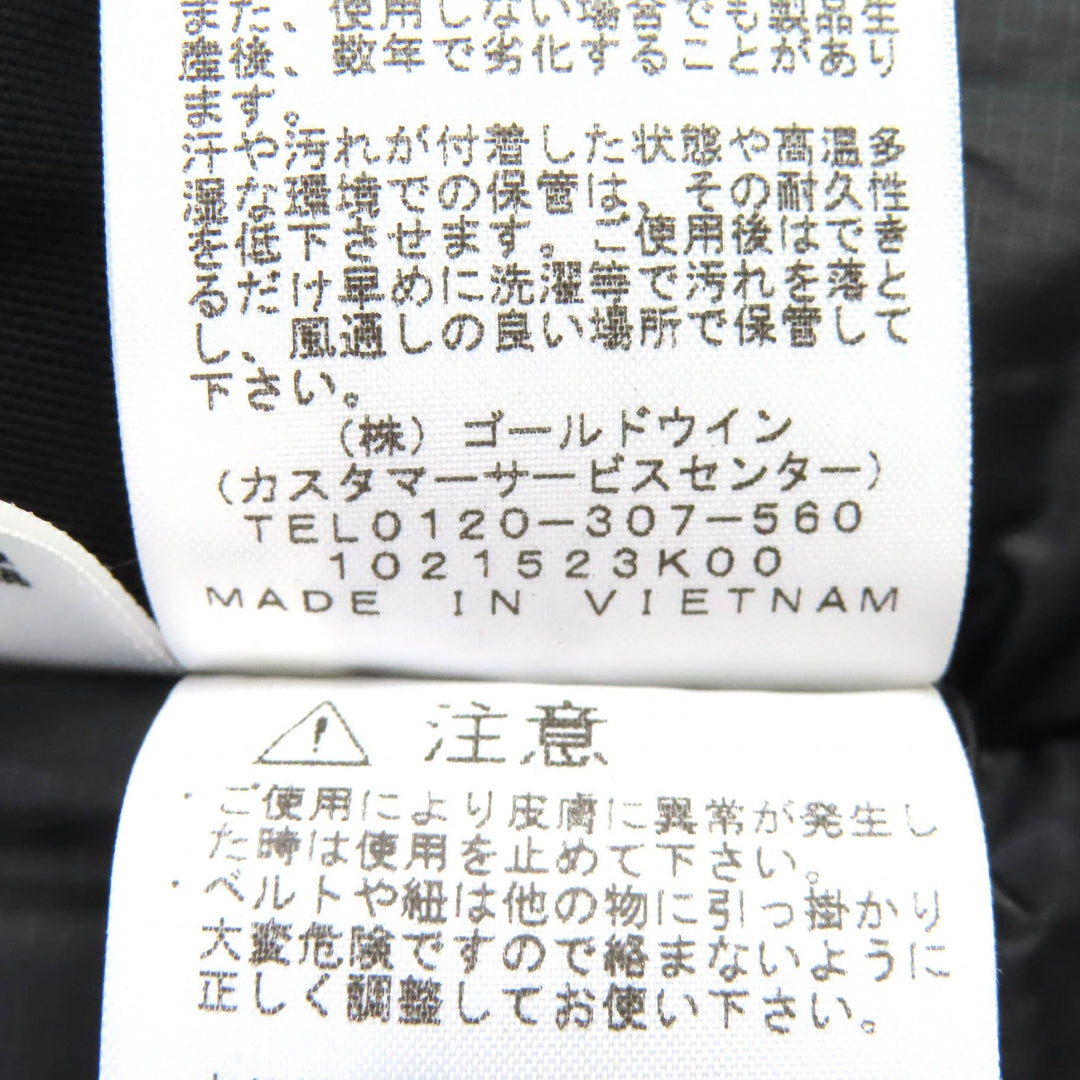 また、使用しない場合でも製品生
産後、数年で劣化することがあり
ます。
汗や汚れが付着した状態や高温多
湿な環境での保管は、その耐久性
を低下させます。ご使用後はでき
るだけ早めに洗濯等で汚れを落と
し、風通しの良い場所で保管して
下さい。
(株)ゴールドウイン
(カスタマーサービスセンター)
TEL0120-307-560
1021523K00
MADE IN VIETNAM
⚠ 注意
・ご使用により皮膚に異常が発生し
た時は使用を止めて下さい。
・ベルトや紐は他の物に引っ掛かり
大変危険ですので絡まないように
正しく調整してお使い下さい。